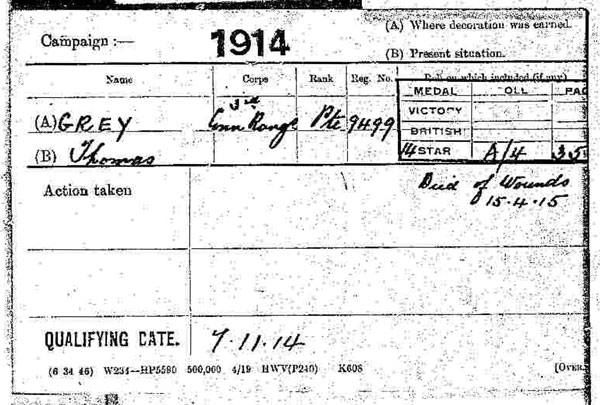 Campaign :— 1914
(A) Where decoration was earned.
(B) Present situation.
Name Corps Rank Reg. No. Roll on which included (if any)
MEDAL OLL PAG
VICTORY
BRITISH
14 STAR A/4 35
3rd
(A) GREY Conn Rang Pte 9499
(B) Thomas
Action taken
Died of Wounds
15.4.15
QUALIFYING DATE. 7.11.14
(6 34 46) W234—HP5590 500,000 4/19 HWV(P240) K608 [OVER.